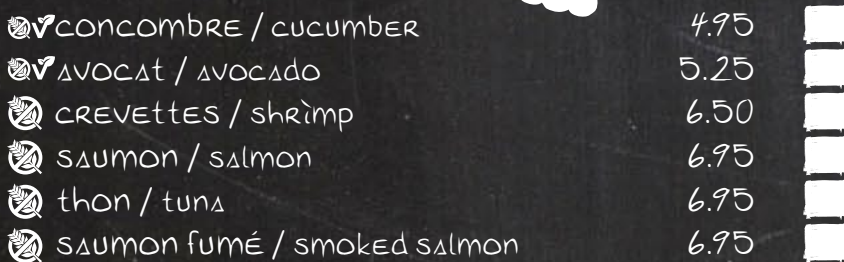 concombre / cucumber 4.95
avocat / avocado 5.25
crevettes / shrimp 6.50
saumon / salmon 6.95
thon / tuna 6.95
saumon fumé / smoked salmon 6.95